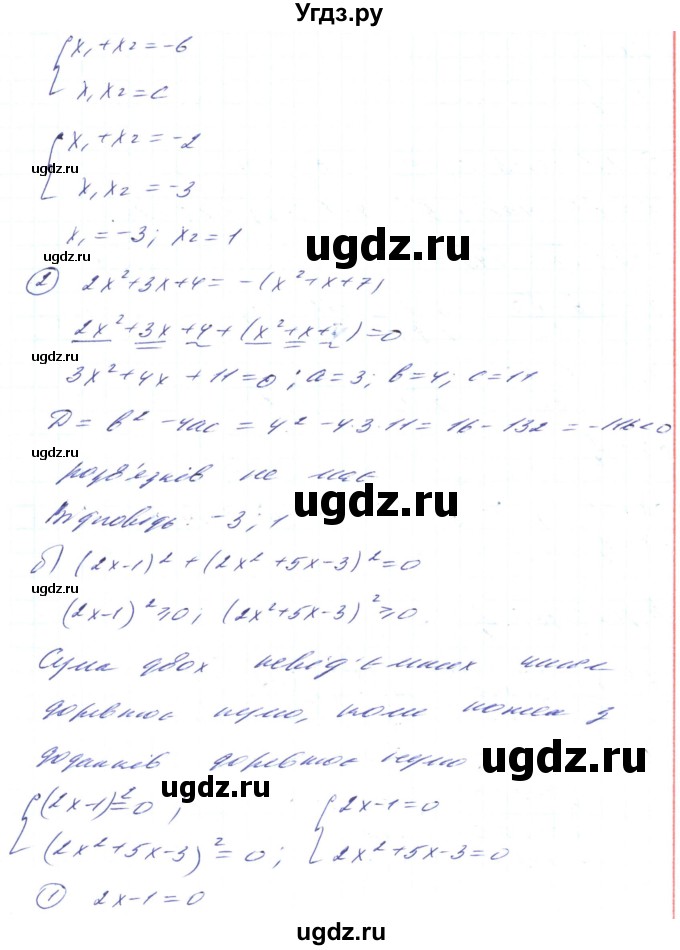 Угдз.ру
{ x₁ + x₂ = -6
x₁ x₂ = c
{ x₁ + x₂ = -2
ugdz.ru
x₁ x₂ = -3
x₁ = -3; x₂ = 1
ugdz.ru
ugdz.ru
② 2x² + 3x + 4 = -(x² + x + 7)
2x² + 3x + 4 + (x² + x + ) = 0
ugdz.ru
3x² + 4x + 11 = 0; a = 3; b = 4; c = 11
D = b² - 4ac = 4² - 4·3·11 = 16 - 132 = -116 < 0
ugdz.ru
розв'язків не має
ugdz.ru
Відповідь: -3; 1
ugdz.ru
б) (2x-1)² + (2x² + 5x - 3)² = 0
ugdz.ru
(2x-1)² ≥ 0; (2x² + 5x - 3)² ≥ 0
Сума двох невід'ємних чисел
дорівнює нулю, коли кожен з
доданків дорівнює нулю
ugdz.ru
ugdz.ru
{ (2x-1)² = 0 ; { 2x - 1 = 0
(2x² + 5x - 3)² = 0; 2x² + 5x - 3 = 0
① 2x - 1 = 0
ugdz.ru